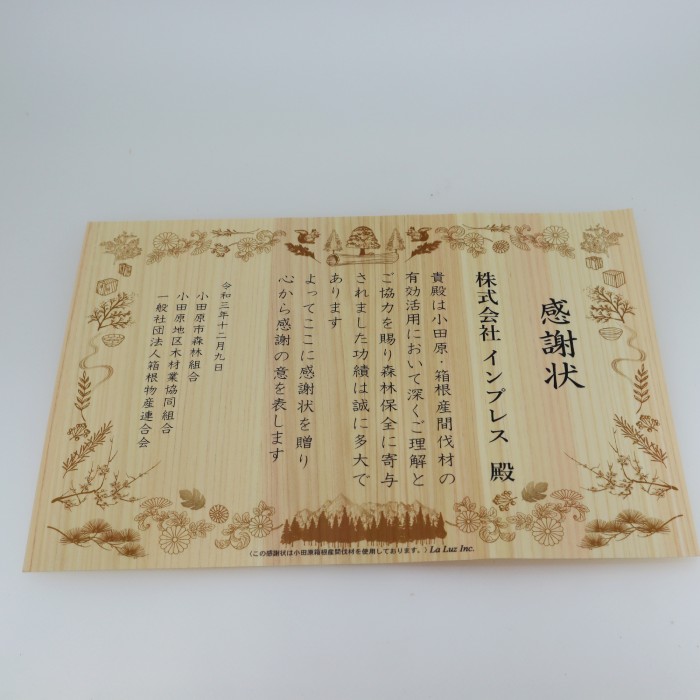 感謝状
株式会社 インプレス 殿
貴殿は小田原・箱根産間伐材の
有効活用において深くご理解と
ご協力を賜り森林保全に寄与
されました功績は誠に多大で
あります
よってここに感謝状を贈り
心から感謝の意を表します
令和三年十二月九日
小田原市森林組合
小田原地区木材業協同組合
一般社団法人箱根物産連合会
(この感謝状は小田原箱根産間伐材を使用しております。) La Luz Inc.